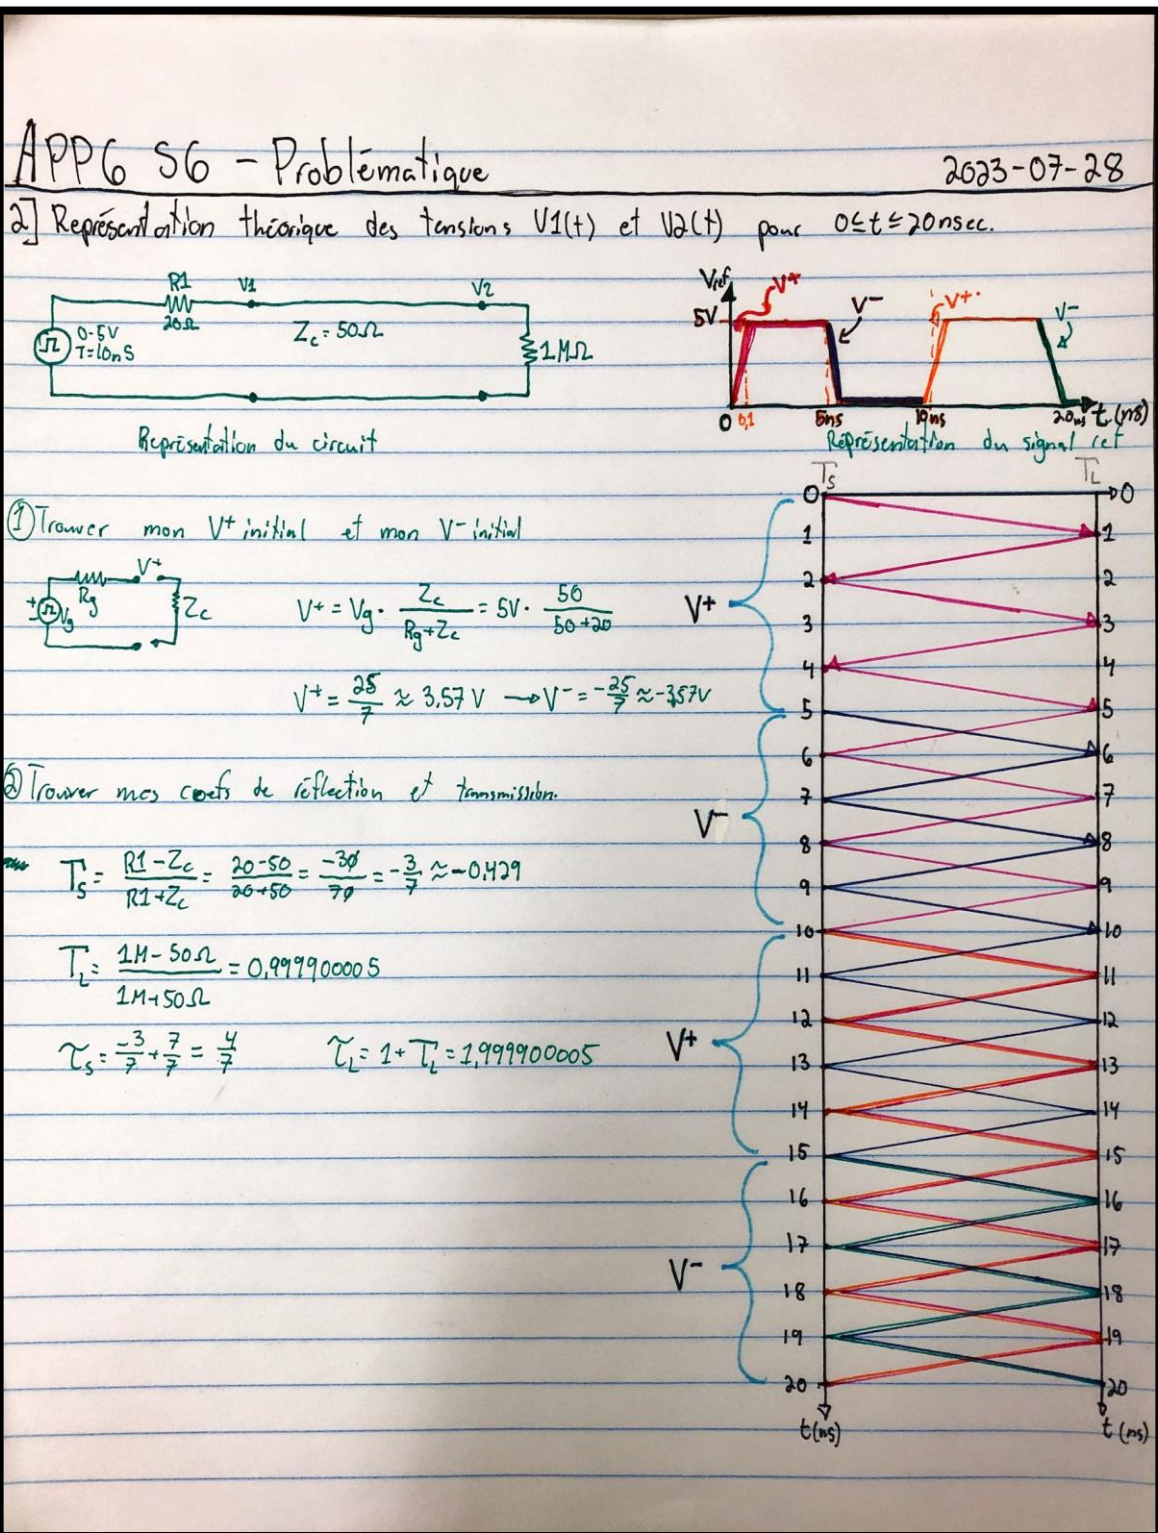 APP6 S6 - Problématique 2023-07-28
2] Représentation théorique des tensions V1(t) et V2(t) pour 0≤t≤20nsec.
R1 V1 V2
20Ω
0-5V
T=10nS
Zc = 50Ω
1MΩ
Représentation du circuit
Vref
V+ V- V+ V-
5V
0 0,1 5ns 10ns 20ns t (ns)
Représentation du signal ref
① Trouver mon V+ initial et mon V- initial
V+
Rg
+
-
Vg
Zc
V+ = Vg · Zc/(Rg+Zc) = 5V · 50/(50+20)
V+ = 25/7 ≈ 3.57 V → V- = -25/7 ≈ -3,57V
② Trouver mes coefs de réflection et transmission.
Ts = (R1-Zc)/(R1+Zc) = (20-50)/(20+50) = -30/70 = -3/7 ≈ -0,429
TL = (1M-50Ω)/(1M+50Ω) = 0,999900005
τs = -3/7 + 7/7 = 4/7 τL = 1 + TL = 1,999900005
Ts TL
0 0
1 1
2 2
V+
3 3
4 4
5 5
6 6
7 7
V-
8 8
9 9
10 10
11 11
12 12
V+
13 13
14 14
15 15
16 16
17 17
V-
18 18
19 19
20 20
t(ns) t (ns)